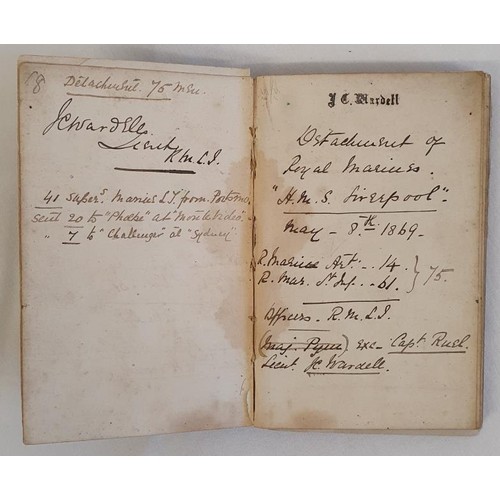 68
Detachment. 75 men.
JCWardell
Lieut
R.M.L.I.
41 super's. Marines L.I. from Portsmo.
sent 20 to "Phœbe" at "Monte Video".
" 7 to "Challenger" at "Sydney"
J C Wardell
Detachment of
Royal Marines.
"H.M.S. Liverpool".
May - 8.th 1869.
R. Marine Art. .. 14. } 75.
R. Mar. Lt Inf. .. 61.
Officers. R.M.L.I.
(Maj. Pym) exc- Capt. Ruel
Lieut. JCWardell.